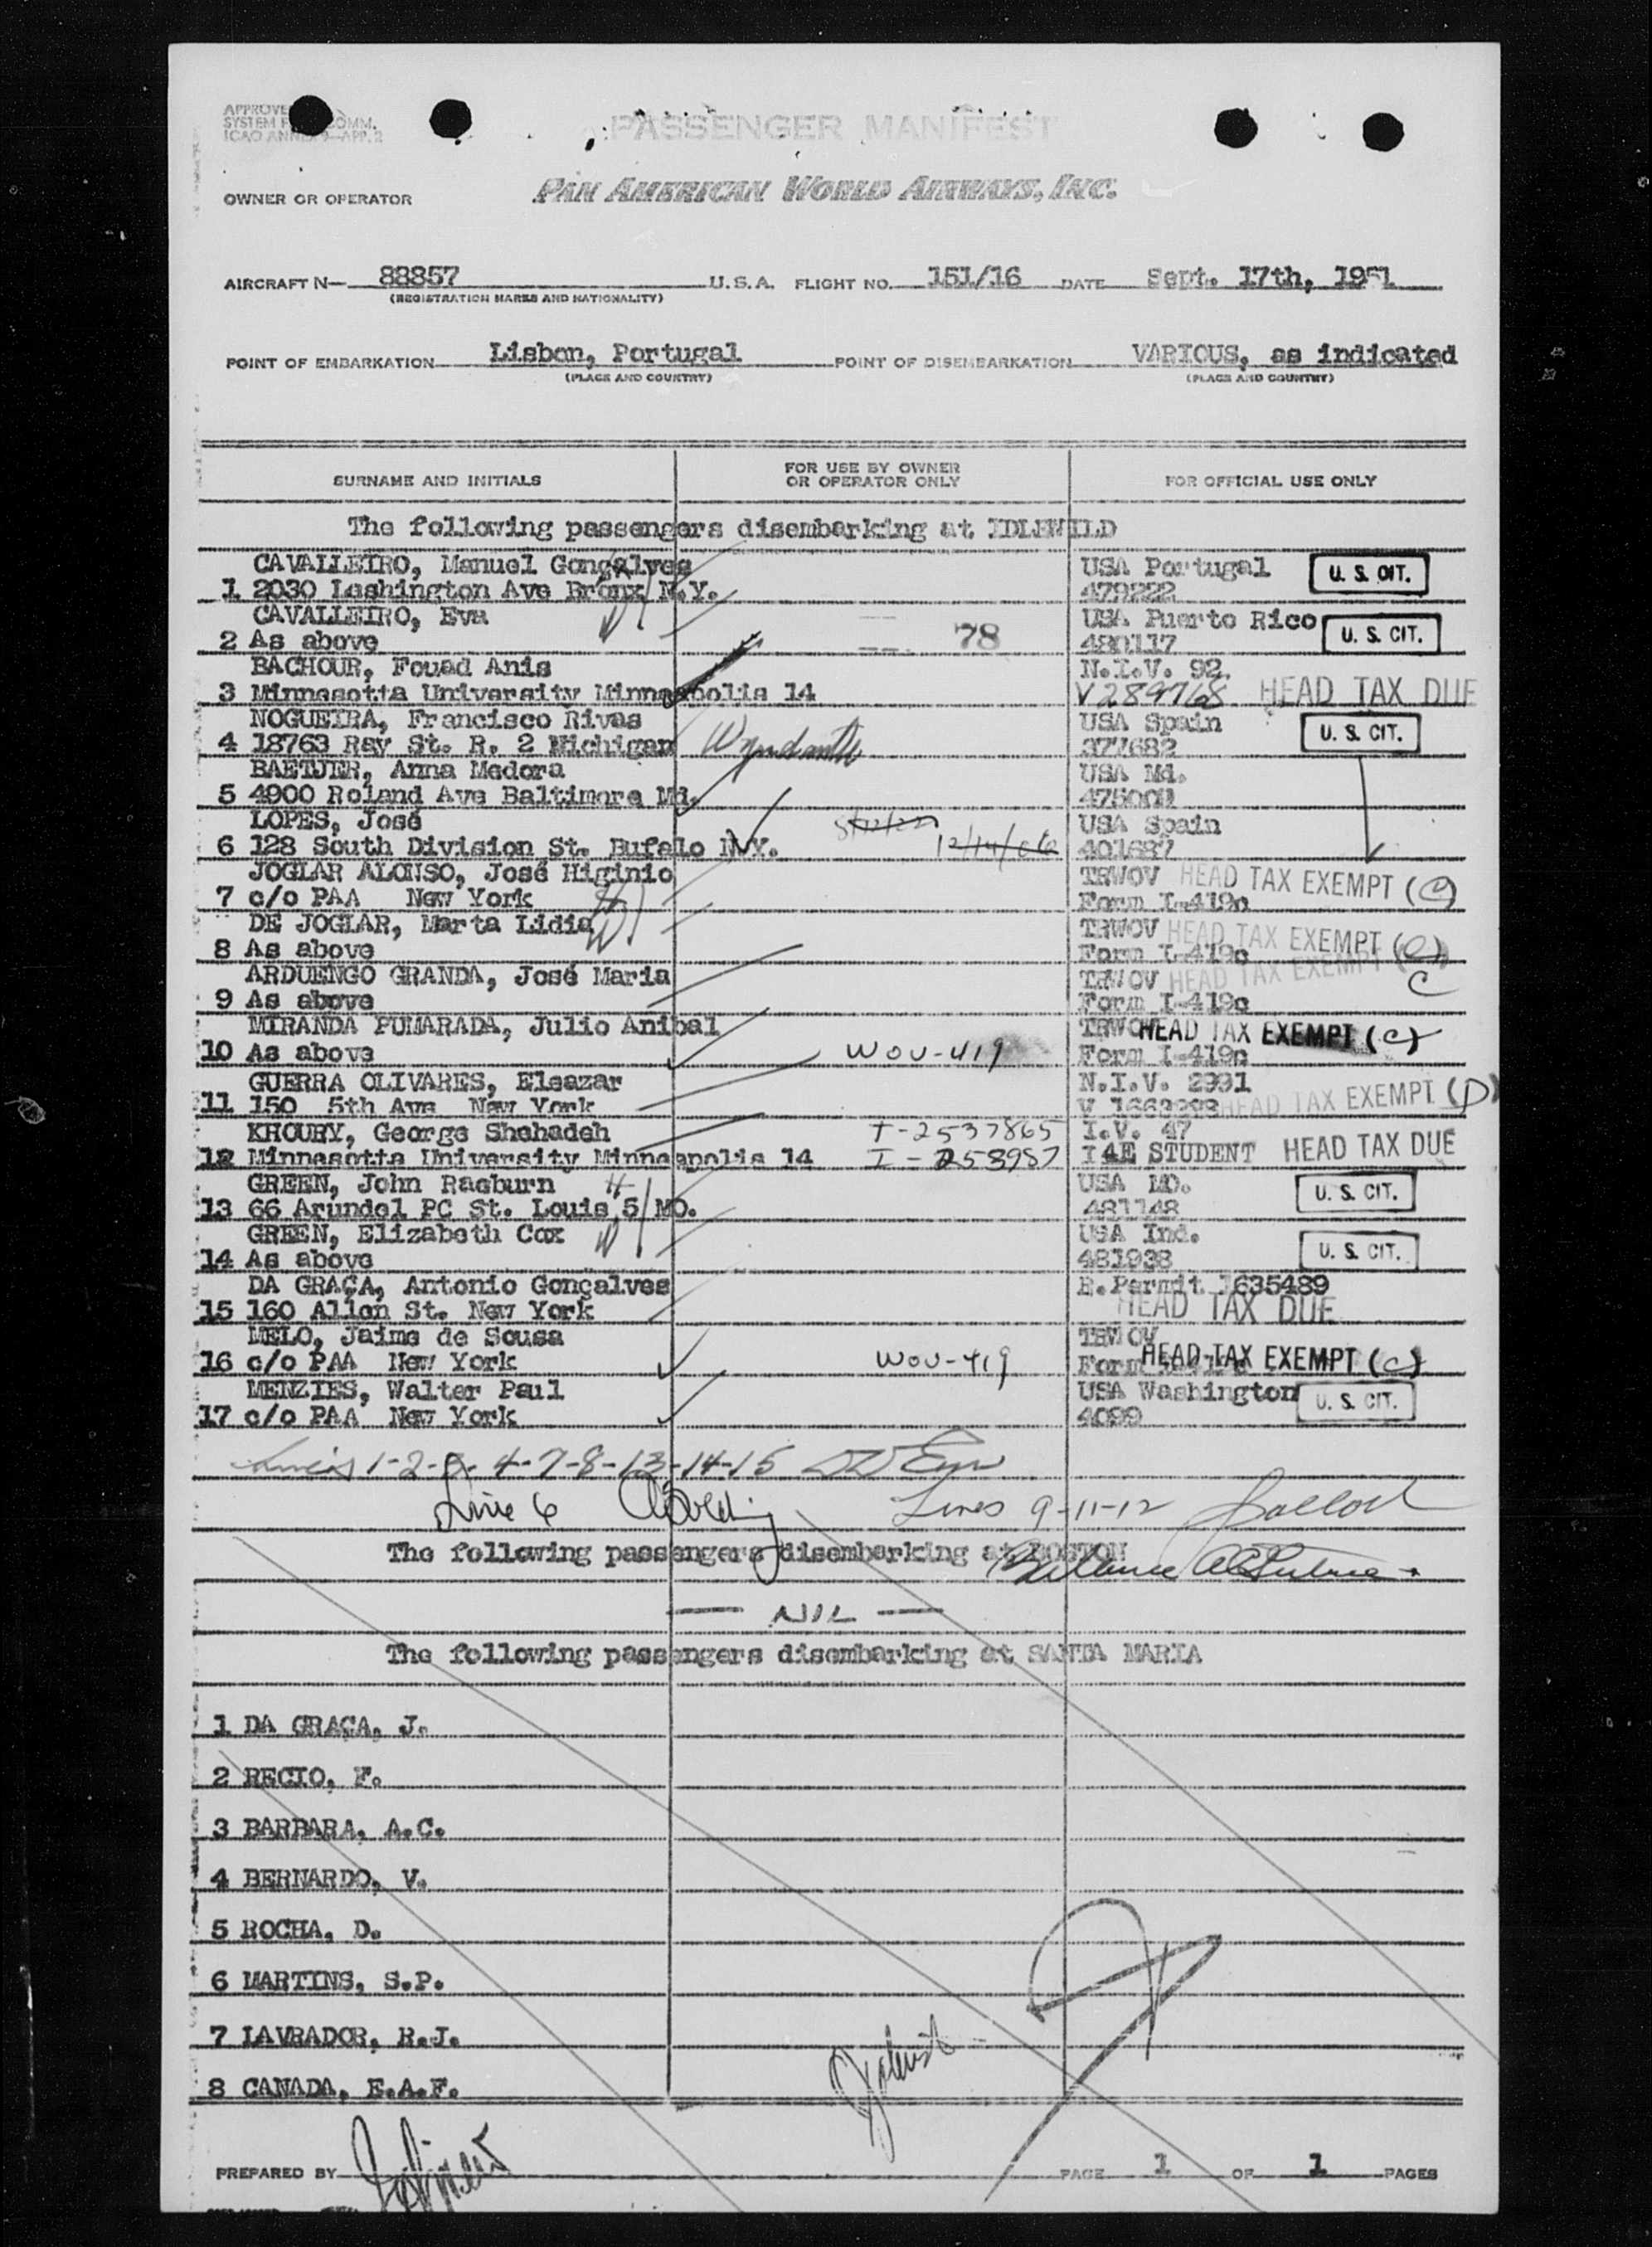 PASSENGER MANIFEST
OWNER OR OPERATOR PAN AMERICAN WORLD AIRWAYS, INC.
AIRCRAFT N— 88857 U.S.A. FLIGHT NO. 151/16 DATE Sept. 17th, 1951
(REGISTRATION MARKS AND NATIONALITY)
POINT OF EMBARKATION Lisbon, Portugal POINT OF DISEMBARKATION VARIOUS, as indicated
(PLACE AND COUNTRY) (PLACE AND COUNTRY)
SURNAME AND INITIALS FOR USE BY OWNER OR OPERATOR ONLY FOR OFFICIAL USE ONLY
The following passengers disembarking at IDLEWILD
CAVALLEIRO, Manuel Gonçalves USA Portugal U. S. CIT.
1 2030 Lashington Ave Bronx N.Y. 479222
CAVALLEIRO, Eva USA Puerto Rico U. S. CIT.
2 As above 78 480117
BACHOUR, Fouad Anis N.I.V. 92.
3 Minnesotta University Minneapolis 14 V 289768 HEAD TAX DUE
NOGUEIRA, Francisco Rivas USA Spain U. S. CIT.
4 18763 Ray St. R. 2 Michigan 377682
BAETJER, Anna Medora USA Md.
5 4900 Roland Ave Baltimore Md.
LOPES, José USA Spain
6 128 South Division St. Bufalo N.Y. 401687
JOGLAR ALONSO, José Higinio TRWOV HEAD TAX EXEMPT (C)
7 c/o PAA New York Form I-419c
DE JOGLAR, Marta Lidia TRWOV HEAD TAX EXEMPT (C)
8 As above Form I-419c
ARDUENGO GRANDA, José Maria TRWOV HEAD TAX EXEMPT C
9 As above Form I-419c
MIRANDA PUMARADA, Julio Anibal TRWO HEAD TAX EXEMPT (C)
10 As above WOV-419 Form I-419c
GUERRA OLIVARES, Eleazar N.I.V. 2991
11 150 5th Ave New York HEAD TAX EXEMPT (D)
KHOURY, George Shehadeh T-2537865 I.V. 47
12 Minnesotta University Minneapolis 14 I-253987 I 4E STUDENT HEAD TAX DUE
GREEN, John Raeburn USA MO. U. S. CIT.
13 66 Arundel PC St. Louis 5 MO. 481148
GREEN, Elizabeth Cox USA Ind.
14 As above 481938 U. S. CIT.
DA GRAÇA, Antonio Gonçalves R.Permit 1635489
15 160 Allen St. New York HEAD TAX DUE
MELO, Jaime de Sousa TRWOV
16 c/o PAA New York WOV-419 Form HEAD TAX EXEMPT (C)
MENZIES, Walter Paul USA Washington U. S. CIT.
17 c/o PAA New York 4099
Lines 9-11-12
Line 6
The following passengers disembarking at BOSTON
— NIL —
The following passengers disembarking at SANTA MARIA
1 DA GRAÇA, J.
2 RECIO, F.
3 BARBARA, A.C.
4 BERNARDO, V.
5 ROCHA, D.
6 MARTINS, S.P.
7 LAVRADOR, R.J.
8 CANADA, E.A.F.
PREPARED BY PAGE 1 OF 1 PAGES